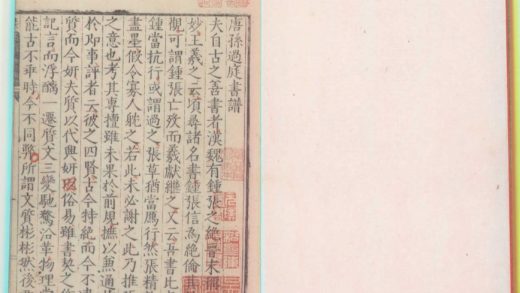 唐孫過庭書譜
夫自古之善書者漢魏有鍾張之絕晉末稱
妙王羲之云頃尋諸名書鍾張信為絕倫其
觀可謂鍾張亡歿而羲獻繼之又云吾書比
鍾當抗行或謂過之張草猶當鴈行然張精
盡墨假令寡人耽之若此未必謝之此乃推
之意也考其專擅雖未果於前規摭以兼通
於即事評者云彼之四賢古今特絕而今不
質而今妍夫質以代興妍因俗易雖書契之
記言而淳醨一遷質文三變馳騖沿革物理
能古不乖時今不同弊所謂文質彬彬然後